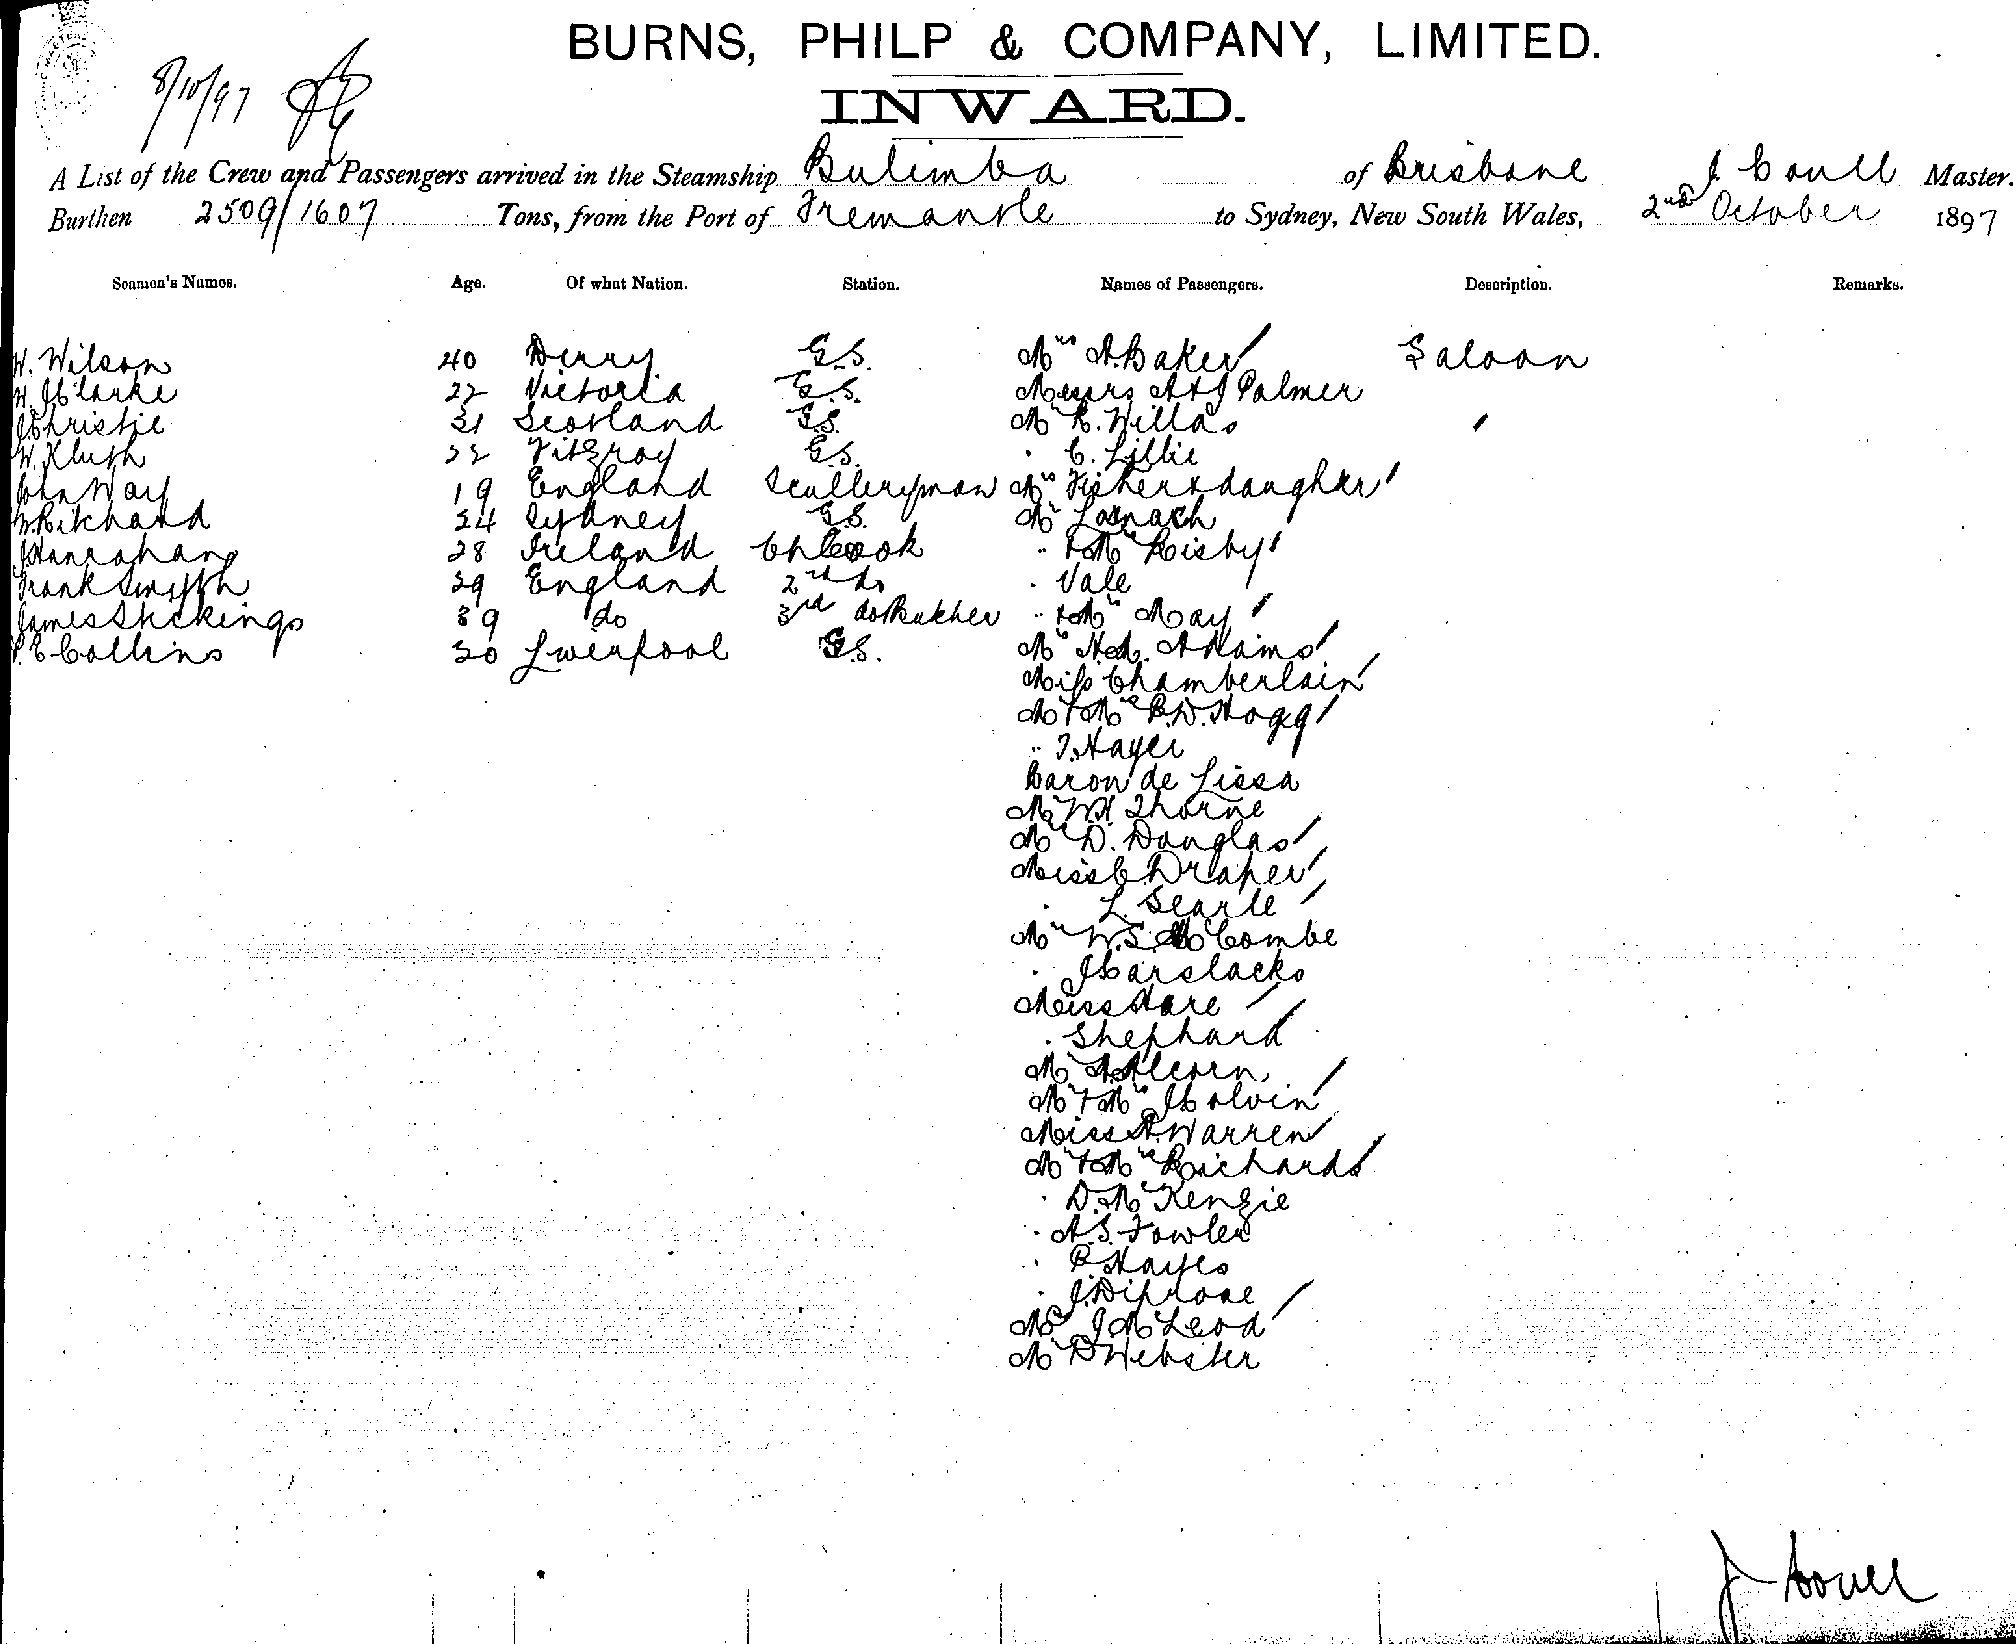 BURNS, PHILP & COMPANY, LIMITED.
INWARD.
8/10/97
A List of the Crew and Passengers arrived in the Steamship Bulimba of Brisbane J Coull Master.
Burthen 2509/1607 Tons, from the Port of Fremantle to Sydney, New South Wales, 2nd October 1897
Seamen's Names. Age. Of what Nation. Station. Names of Passengers. Description. Remarks.
H. Wilson 40 Derry G.S. Mrs A Baker Saloon
Clarke 22 Victoria G.S. Messrs A & J Palmer
Christie 31 Scotland G.S. Mr R. Willas
W. Kluth 22 Fitzroy G.S. " C. Lillie
John Way 19 England Sculleryman Mrs Fisher & daughter
Pritchard 24 Sydney G.S. Mr Larnach
J Hanrahan 28 Ireland Ch Cook " & Mrs Risby
Frank Smyth 29 England 2nd do " Vale
James Stickings 39 do 3rd do & Butcher " & Mrs May
Collins 30 Liverpool G.S. Mrs Adams
Miss Chamberlain
Mr & Mrs Hogg
" Hayer
Baron de Lissa
Mr W.H. Thorne
D. Douglas
Miss C Draper
" L. Searle
Mr W.S. McCombe
" J Carslacks
Miss Hare
" Shephard
Mr A. Alcorn
Mr & Mrs J Colvin
Miss A. Warren
Mr & Mrs Richards
" D. McKenzie
" A.S. Fowler
" P Hayes
" J. Diprose
J McLeod
Mr D Webster
J Coull